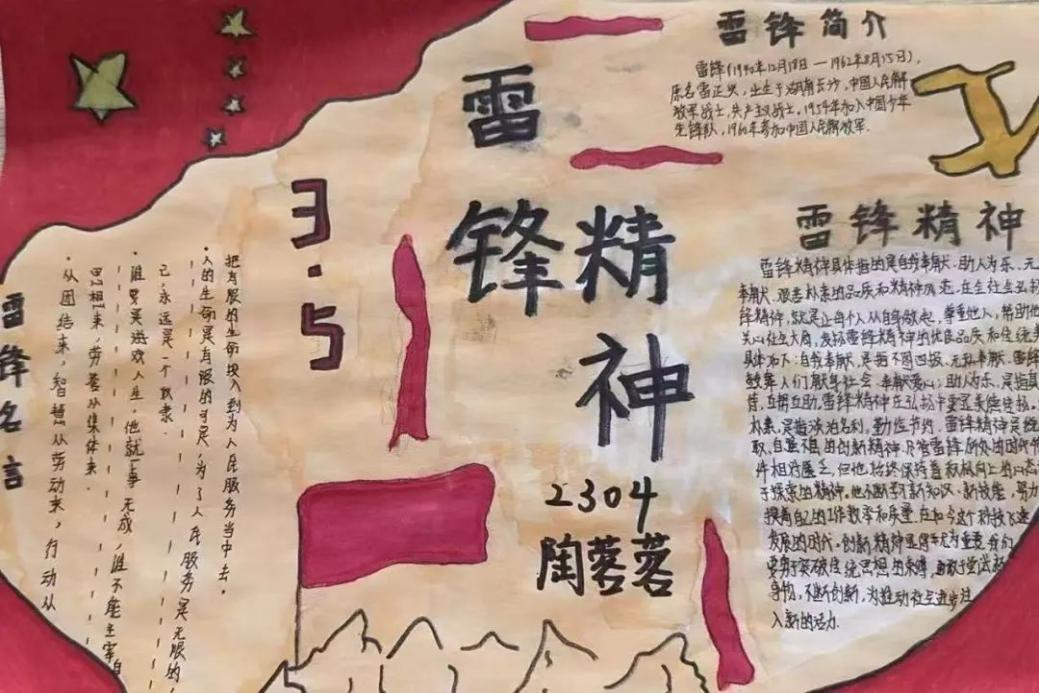 雷锋精神
3.5
2304
陶蓉蓉
雷锋简介
雷锋(1940年12月18日—1962年8月15日),
原名雷正兴,出生于湖南长沙,中国人民解
放军战士,共产主义战士,1954年加入中国少年
先锋队,1960年参加中国人民解放军.
雷锋精神
雷锋精神具体指的是自我奉献、助人为乐、无
奉献、艰苦朴素的品质和精神
锋精神,就是让每个人从自身做起,尊重他人,帮助他
关心社会大局,发扬雷锋精神的优良品质和传统美
具体如下:自我奉献,是指不图回报、无私奉献、雷锋
人们献身社会、奉献爱心;助人为乐,是指
互帮互助,雷锋精神在弘扬中
朴素,是指淡泊名利、勤俭节约,雷锋精神
取、自强不息的创新精神,尽管雷锋所处的时代
件相对匮乏,但他始终保持着积极向上的心态
于探索的精神,他不断学习新知识、新技能,努力
提高自己的工作效率和质量,在如今这个科技飞速
发展的时代,创新精神显得尤为重要,我们
要勇于突破传统思想的束缚,敢于尝试新
事物,不断创新,为推动社会进步注
入新的活力.
雷锋名言
·人的生命是有限的可是,为了人民服务是无限的,
把有限的生命投入到为人民服务当中去.
·谁要是游戏人生,他就一事无成,谁不能主宰自
己,永远是一个奴隶.
·从团结来,智慧从劳动来,行动从
思想来,荣誉从集体来.